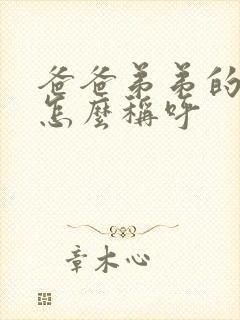 爸爸弟弟的
怎麼稱呼
章木心